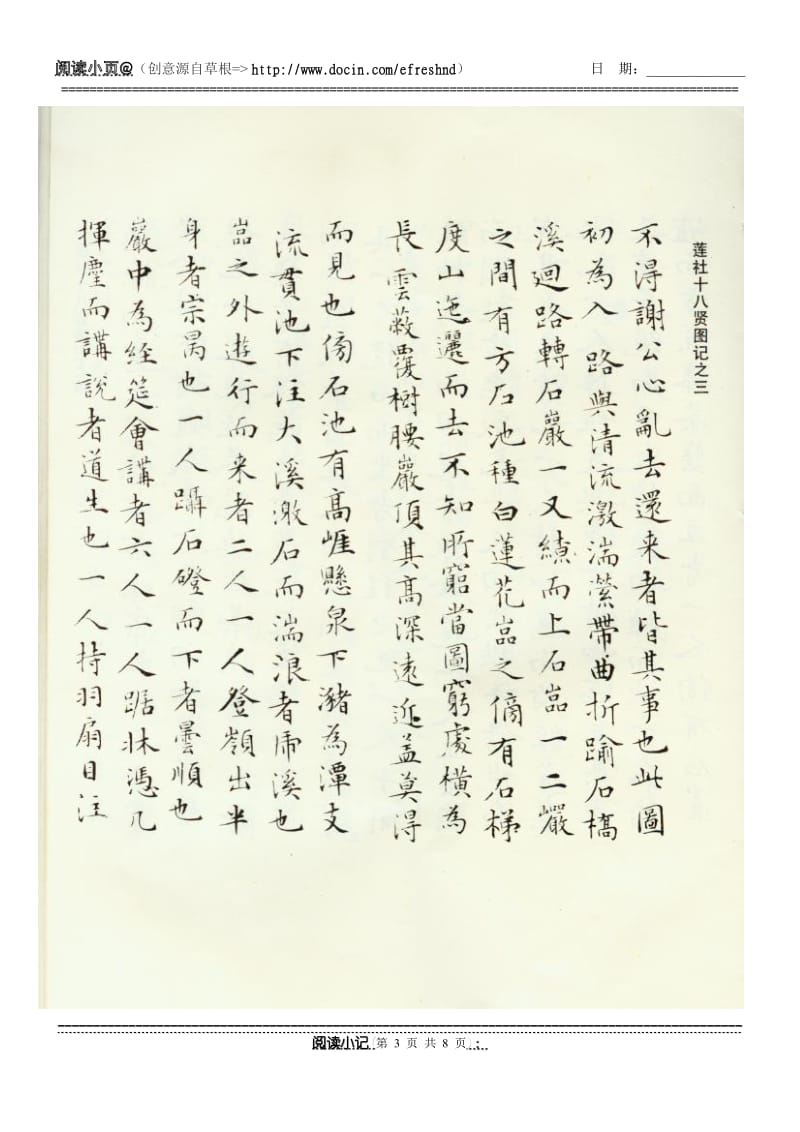 阅读小页@（创意源自草根=> http://www.docin.com/efreshnd） 日 期：____________
莲社十八贤图记之三
不得謝公心亂去還来者皆其事也此圖
初為入路與清流激湍縈帶曲折踰石橋
溪迴路轉石巖一又繞而上石嵓一二巖
之間有方石池種白蓮花嵓之傍有石梯
度山迤邐而去不知所窮當圖窮處橫為
長雲蔽覆樹腰巖頂其高深遠近蓋莫得
而見也傍石池有高崕懸泉下瀦為潭支
流貫池下注大溪激石而湍浪者虎溪也
嵓之外遊行而来者二人一人登嶺出半
身者宗昺也一人躡石磴而下者曇順也
巖中為經筵會講者六人一人踞牀憑几
揮麈而講說者道生也一人持羽扇目注
阅读小记[第 3 页 共 8 页]；